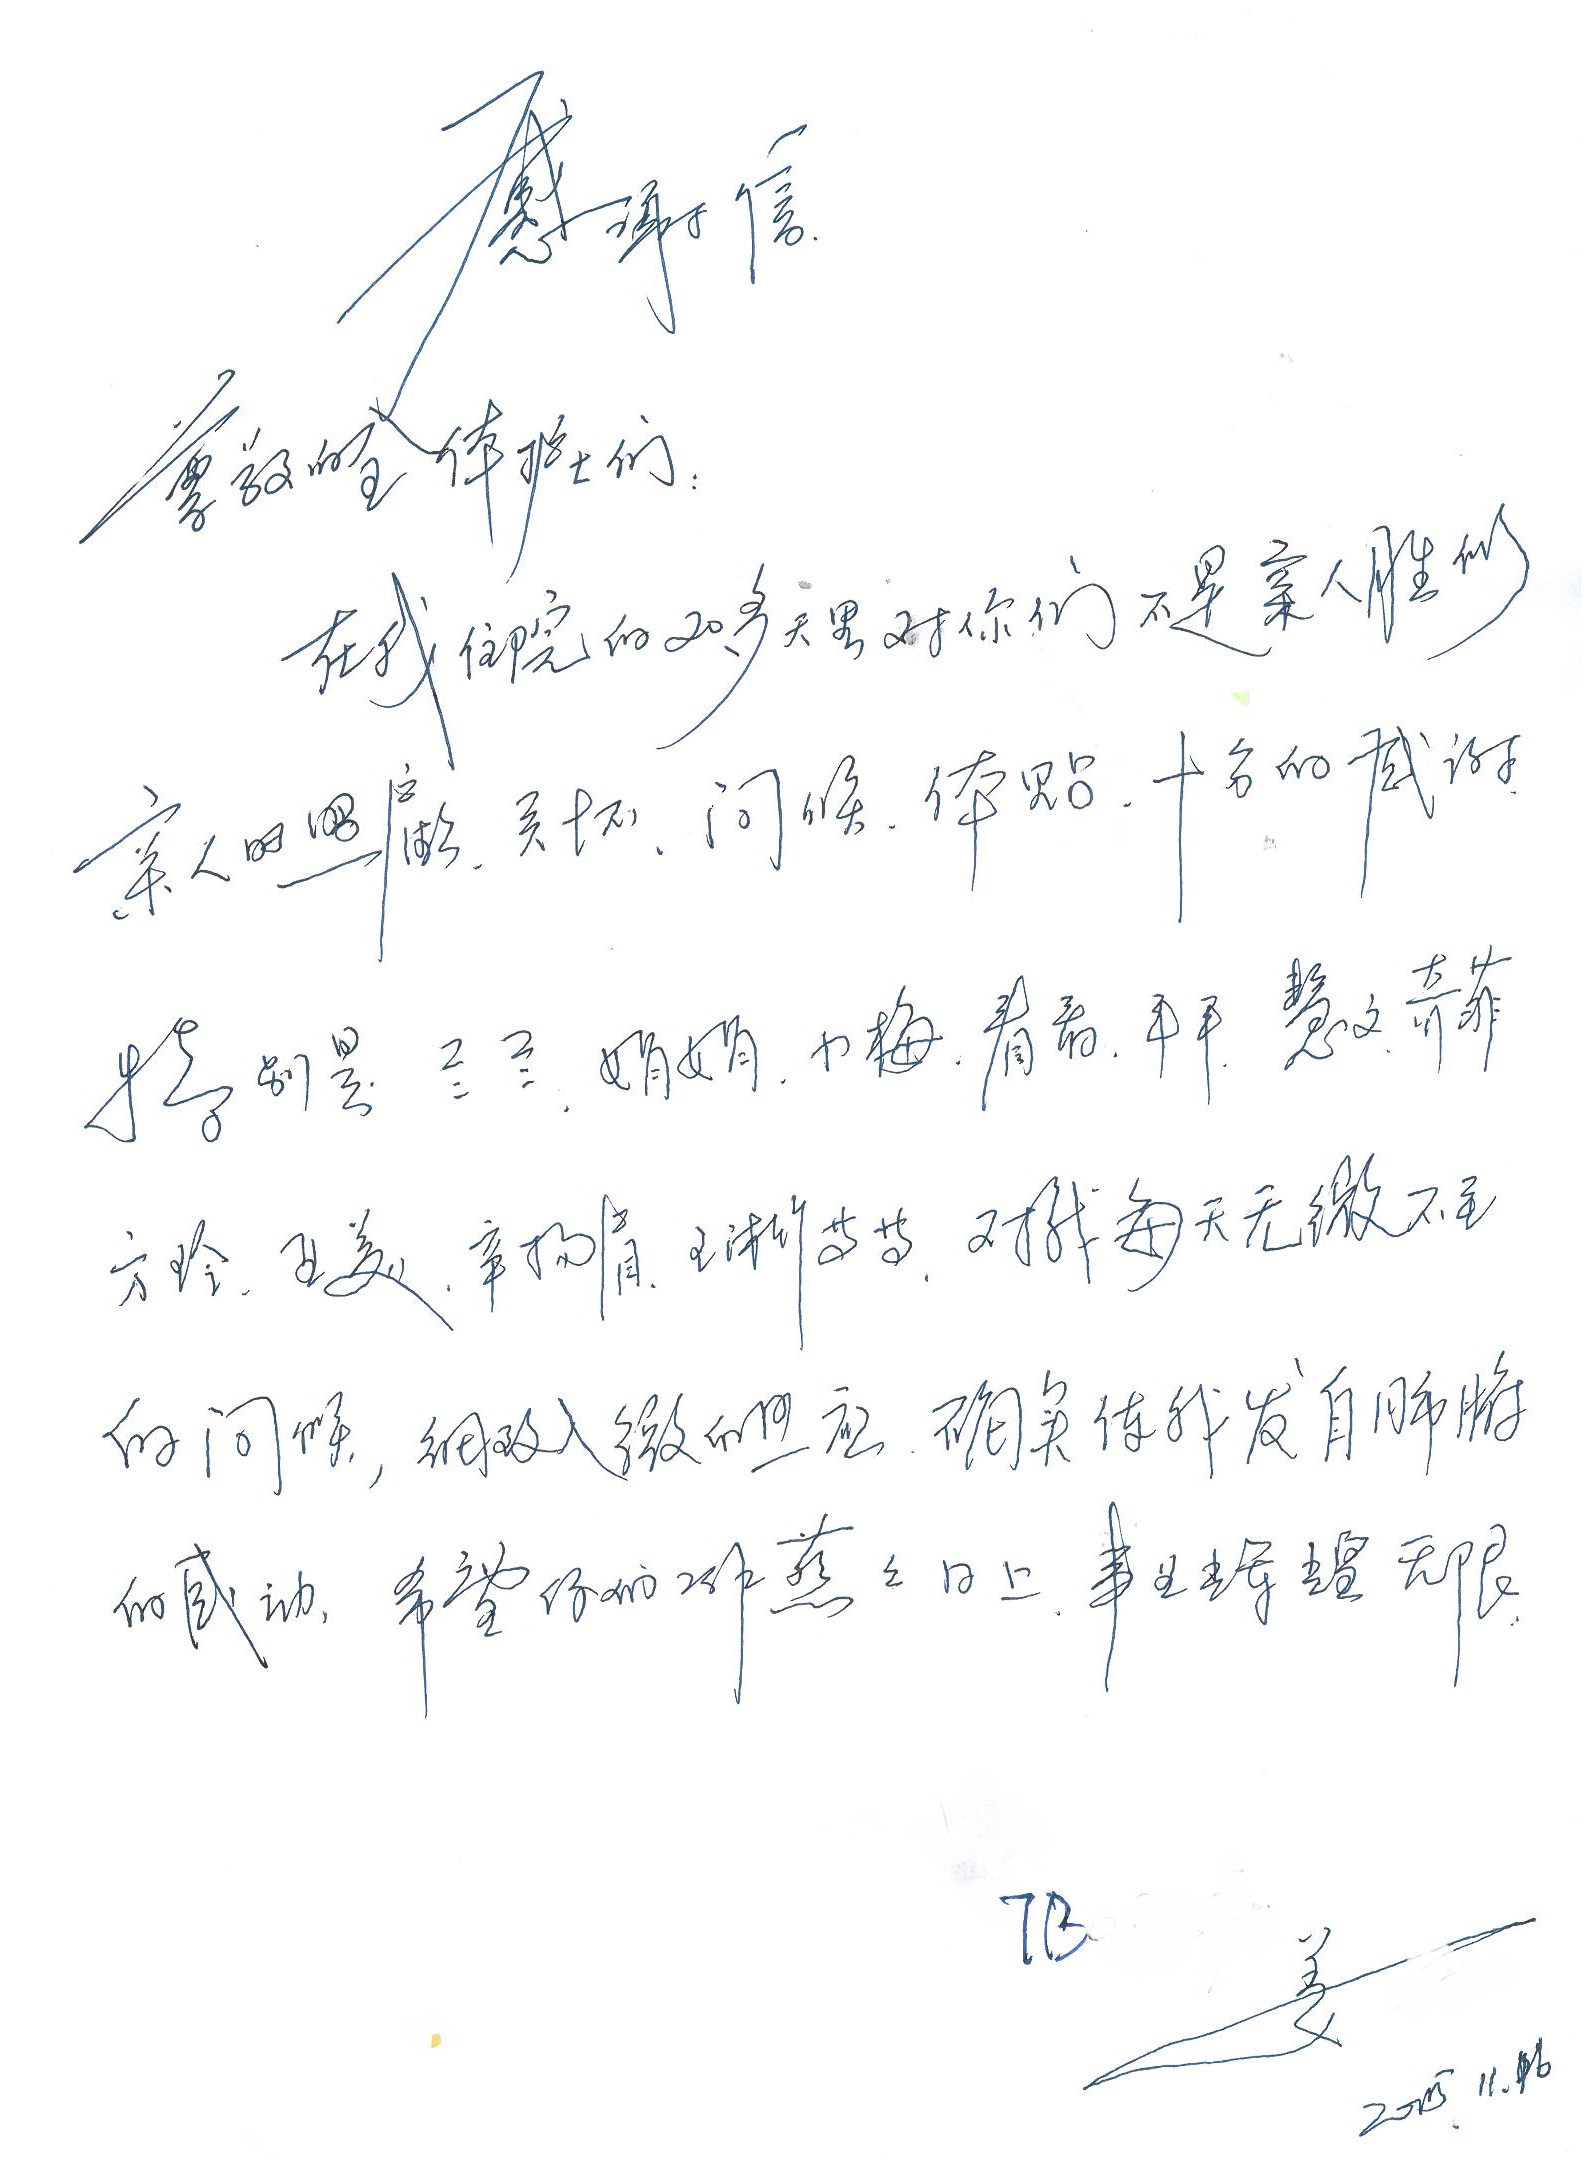 感谢信
尊敬的全体护士们:
在我住院的20多天里对你们不是亲人胜似
亲人的照顾、关怀、问候、体贴、十分的感谢.
特别是 兰兰、娟娟、小梅、看着、平平、慧文、奇菲
方玲、王美、章杨眉、王淅 芳芳、对我每天无微不至
的问候, 细致入微的照应、确实使我发自肺腑
的感动、希望你们工作蒸蒸日上、事业辉煌无限.
7B
姜
2015.11.16